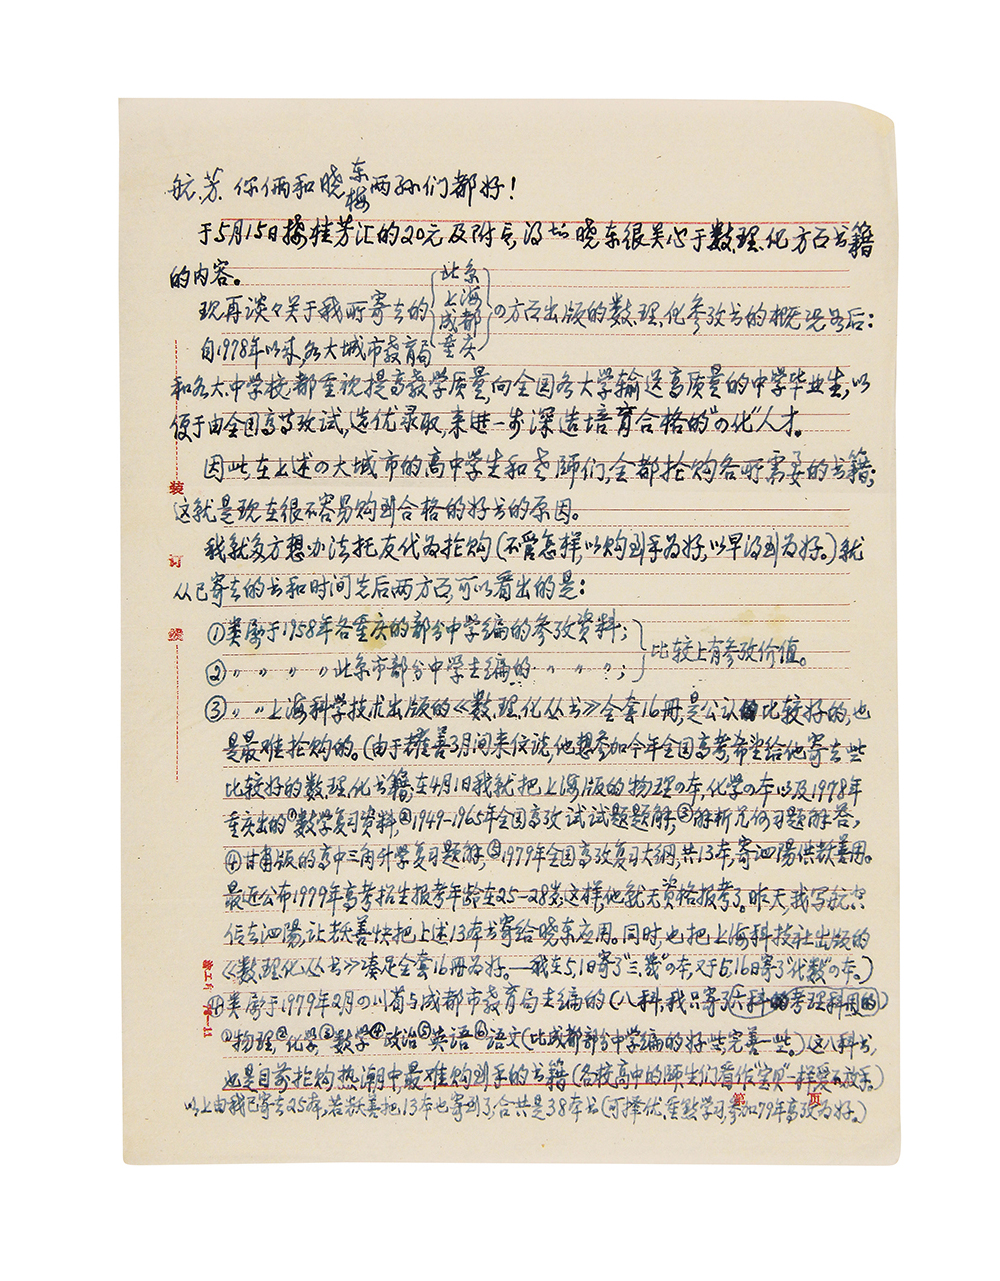 航、芳、你俩和晓东梅两孙们都好！
于5月15日接桂芳汇的20元及附言，得知晓东很关心于数、理、化方面书籍
的内容。
现再谈々关于我所寄去的{北京 上海 成都 重庆}の方面出版的数、理、化参考书的概况如后：
自1978年以来，各大城市教育局
和各大、中学校，都重视提高教学质量，向全国各大学输送高质量的中学毕业生，以
便于由全国高等考试，选优录取，来进一步深造培育合格的"の化"人才。
因此在上述の大城市的高中学生和老师们，全都抢购各所需要的书籍；
这就是现在很不容易购到合格的好书的原因。
我就多方想办法托友代为抢购（不管怎样，以购到手为好，以早得到为好。）就
从已寄去的书和时间先后两方面，可以看出的是：
①类属于1958年各重庆的部分中学编的参考资料；
②〃 〃 〃 〃北京市部分中学主编的 〃 〃 〃 ；
比较上有参考价值。
③〃 〃上海科学技术出版的《数、理、化丛书》全套16册，是公认的比较好的，也
是最难抢购的。（由于耀善3月间来信谈，他想参加今年全国高考，希望给他寄去些
比较好的数、理、化书籍；在4月1日我就把上海版的物理の本，化学の本以及1978年
重庆出的①数学复习资料，②1949-1965年全国高考试试题题解，③解析几何习题解答，
④甘肃版的高中三角升学复习题解，⑤1979年全国高考复习大纲，共13本，寄泗陽供耀善用。
最近公布1979年高考招生报考年龄在25-28岁；这样，他就无资格报考了。昨天，我写航空
信去泗陽，让耀善快把上述13本书寄给晓东应用。同时，也把上海科技社出版的
《数、理、化、丛书》凑足全套16册为好。—我在5,1日寄了"三、几"の本，又于5,16日寄了"代数"の本。）
④类属于1979年2月の川省与成都市教育局主编的（八科，我只寄了六科的考理科用的）
①物理，②化学，③数学④政治⑤英语⑥语文（比成都部分中学编的好些，完善一些。）这八科书，
也是目前抢购热潮中最难购到手的书籍（各校高中的师生们看作"宝贝"一样爱不放手。）
以上由我已寄去25本，若耀善把13本也寄到了，合共是38本书（可择优、重點学习，参加79年高考为好。）
装
订
线
第 页